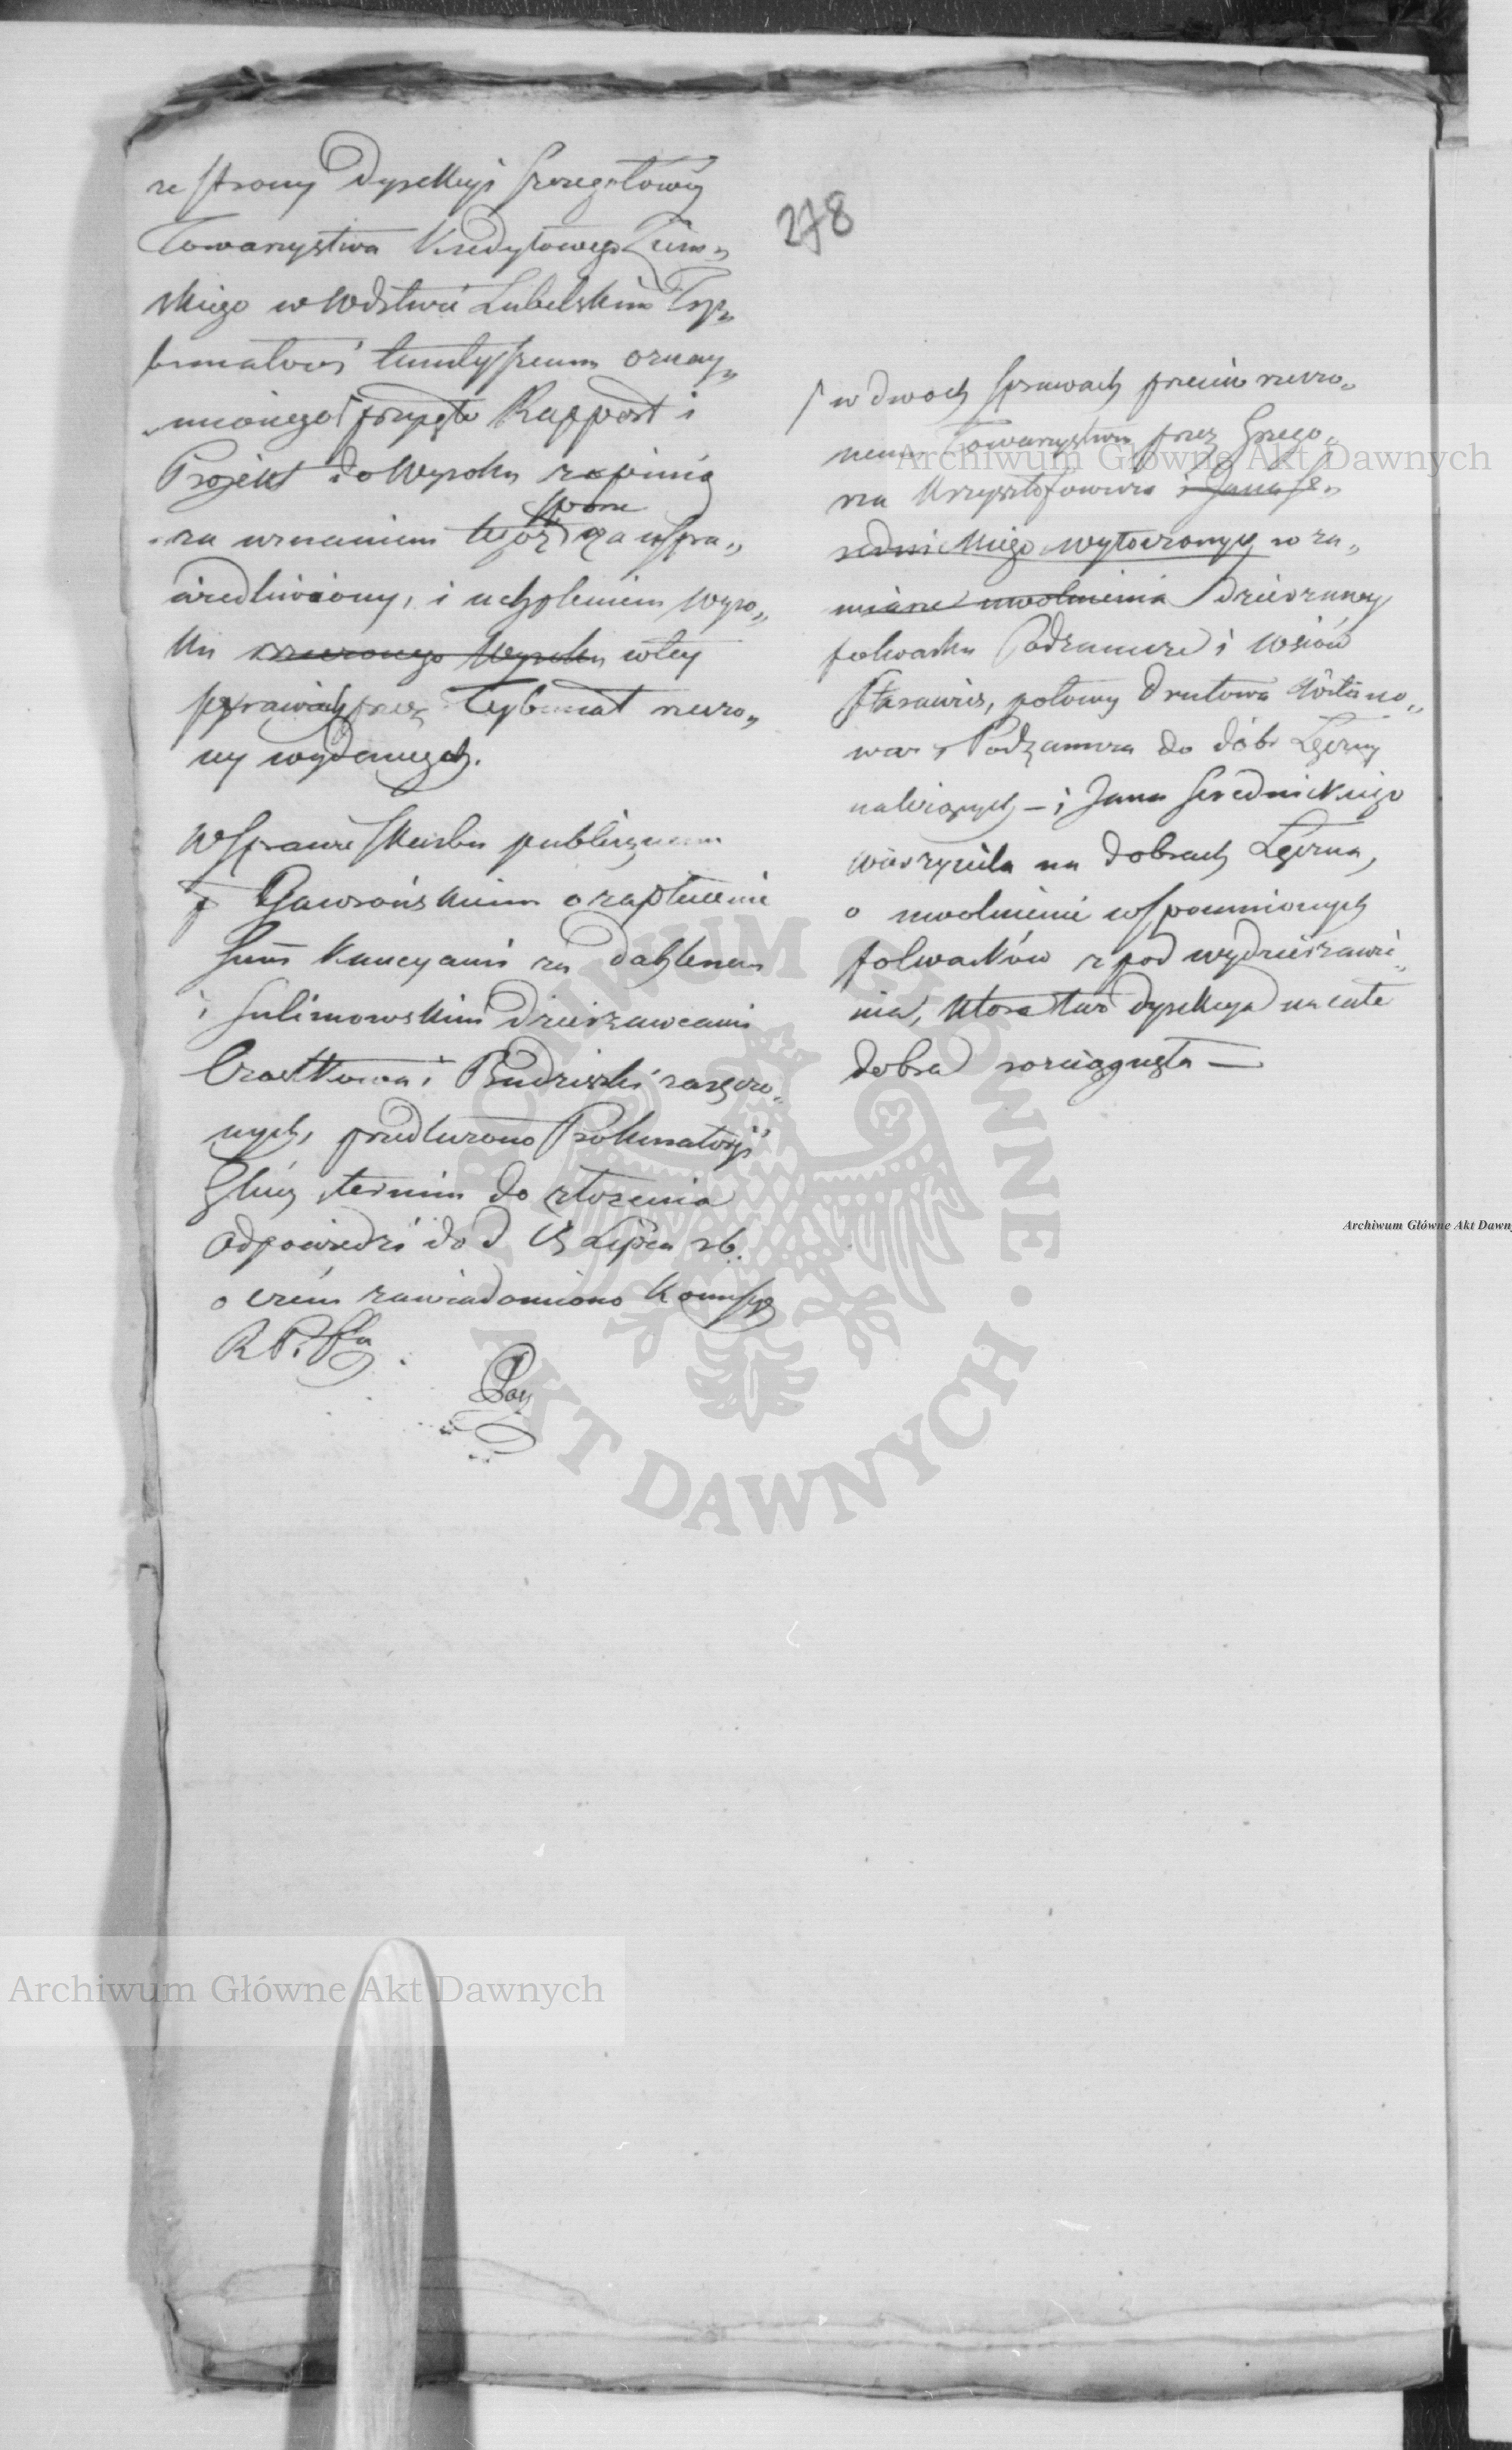 ze strony Dyrekcyi Szczegółowey
Towarzystwa Kredytowego Ziem„
skiego w Wdztwie Lubelskim Try„
bunałowi tamtyszemu oznay„
mionego przyięto Rapport i
Projekt do Wyroku z opinią
za uznaniem tegoż sporu za uspra„
wiedliwiony, i uchyleniem wyro„
ku wtey
sprawie przez Trybunał rzeczo„
ny wydanego.
W sprawie Skarbu publicznego
z Gawrońskim o zapłacenie
Summ kaucyami za Dahlenem
i Sulimowskim Dzierżawcami
i Budziszki zaręczo„
nych, przedłużono Prokuratoryi
Glney termin do złożenia
odpowiedzi do d 15 Lipca rb.
o czem zawiadomiono Kommissyą
R. P. Sbu
278
w dwoch sprawach przeciw rzeczo„
nemu Towarzystwu przez Grzego„
rza Krzysztofowicza i Jana Se„
rednickiego wytoczonych w za„
miarze uwolnienia Dzierżawcy
folwarku Podzamcze i wsiów
Starawieś, połowy Drutowa
i Podzamcza do dóbr Łęczny
należących – i Jana Serednickiego
wierzyciela na Dobrach Łęczna,
o uwolnienie wspomnionych
folwarków z pod wydzierżawie„
nia, które taż Dyrekcya na całe
dobra rozciągnęła —
Archiwum Główne Akt Dawnych
Archiwum Główne Akt Dawn
Archiwum Główne Akt Dawnych
ARCHIWUM GŁÓWNE · AKT DAWNYCH ·